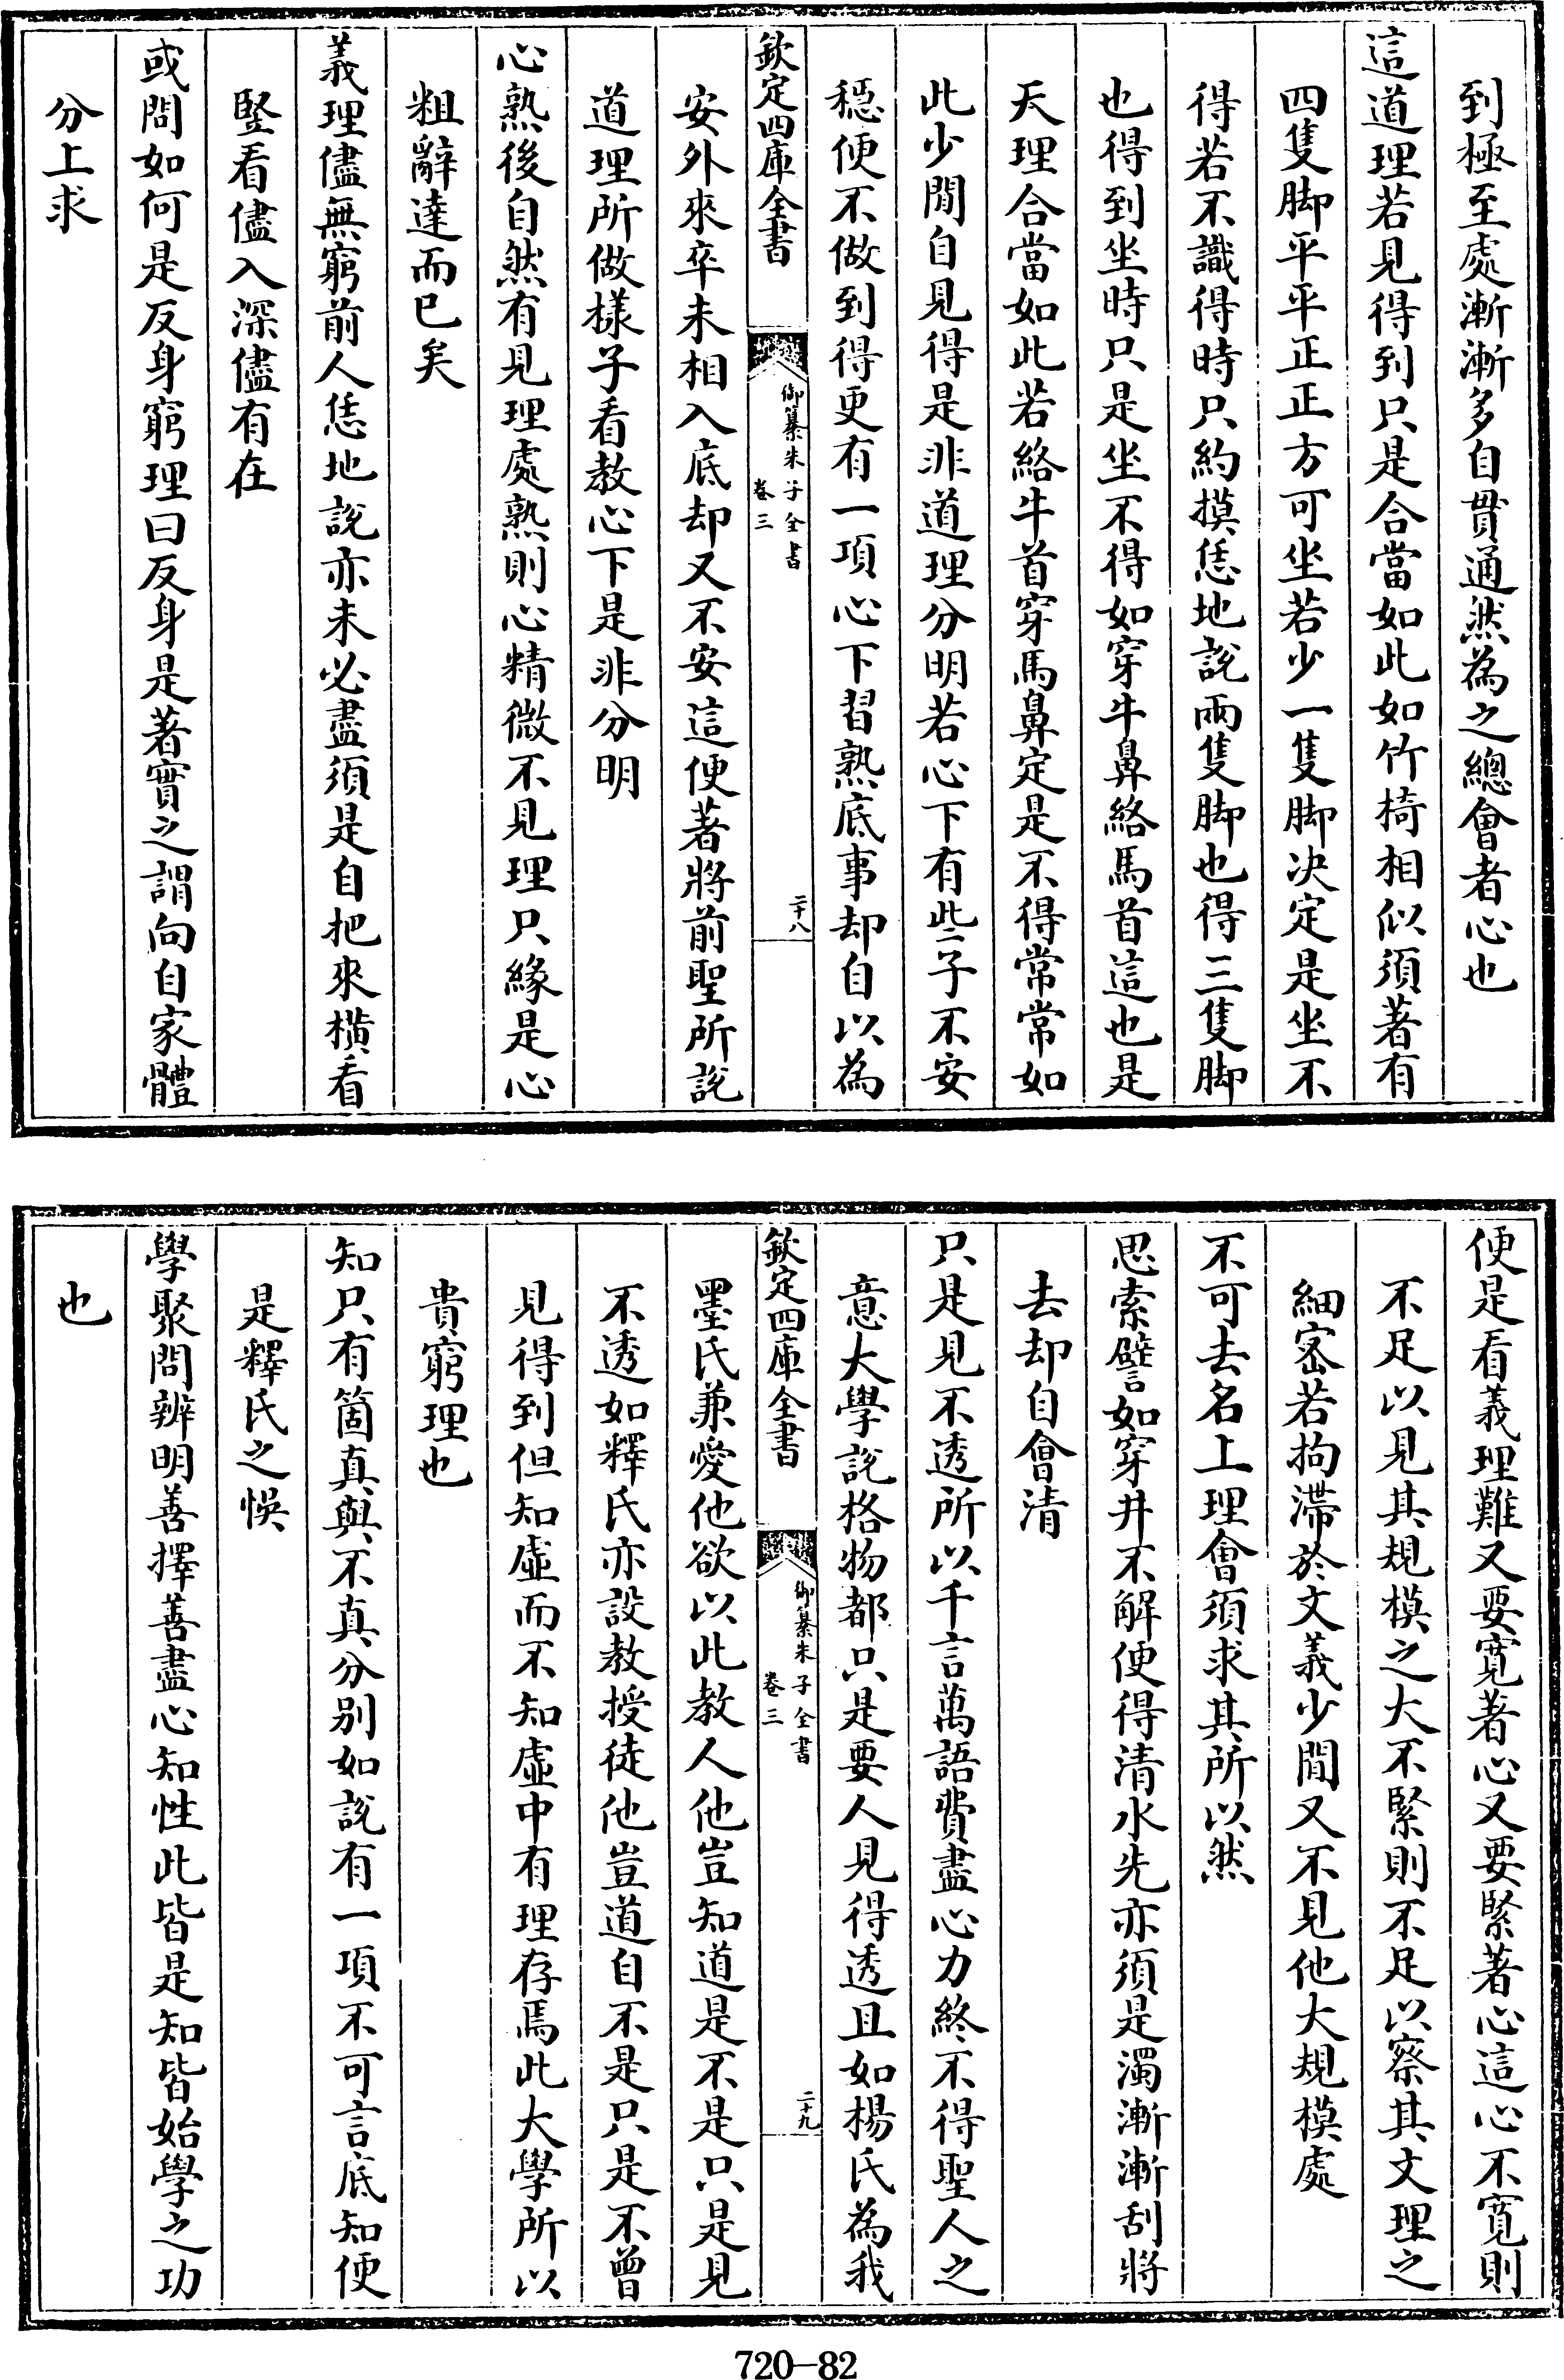 到極至處漸漸多自貫通然為之總會者心也
這道理若見得到只是合當如此如竹椅相似須著有
四隻脚平平正正方可坐若少一隻脚决定是坐不
得若不識得時只約摸恁地說兩隻脚也得三隻脚
也得到坐時只是坐不得如穿牛鼻絡馬首這也是
天理合當如此若絡牛首穿馬鼻定是不得常常如
此少間自見得是非道理分明若心下有些子不安
穩便不做到得更有一項心下習熟底事却自以為
欽定四庫全書
御纂朱子全書
卷三
二十八
安外來卒未相入底却又不安這便著將前聖所說
道理所做樣子看教心下是非分明
心熟後自然有見理處熟則心精微不見理只緣是心
粗辭達而已矣
義理儘無窮前人恁地說亦未必盡須是自把來橫看
豎看儘入深儘有在
或問如何是反身窮理曰反身是著實之謂向自家體
分上求
便是看義理難又要寛著心又要緊著心這心不寛則
不足以見其規模之大不緊則不足以察其文理之
細宻若拘滯於文義少間又不見他大規模處
不可去名上理會須求其所以然
思索譬如穿井不解便得清水先亦須是濁漸漸刮將
去却自會清
只是見不透所以千言萬語費盡心力終不得聖人之
意大學說格物都只是要人見得透且如楊氏為我
欽定四庫全書
御纂朱子全書
卷三
二十九
墨氏兼愛他欲以此教人他豈知道是不是只是見
不透如釋氏亦設教授徒他豈道自不是只是不曾
見得到但知虛而不知虛中有理存焉此大學所以
貴窮理也
知只有箇真與不真分别如說有一項不可言底知便
是釋氏之悞
學聚問辨明善擇善盡心知性此皆是知皆始學之功
也
720-82